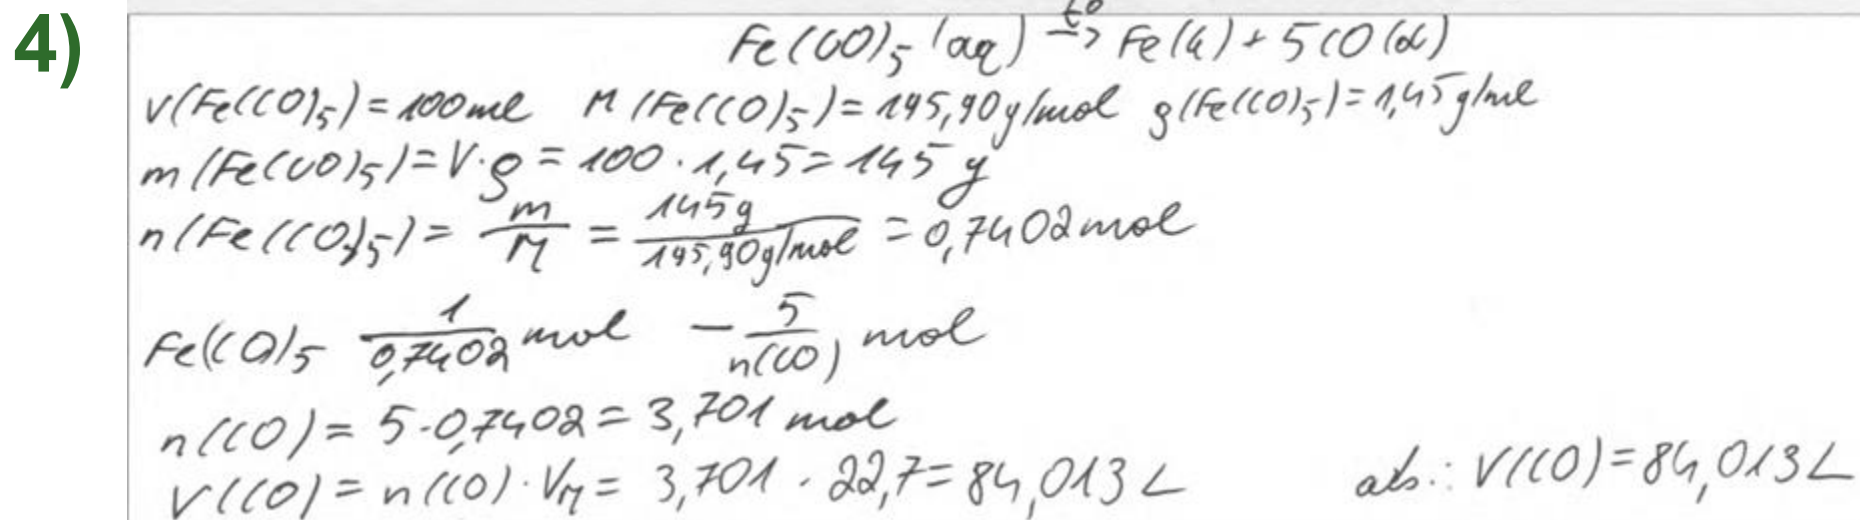 4)
Fe(CO)₅ (aq) t°→ Fe(k) + 5CO(d)
V(Fe(CO)₅) = 100ml M(Fe(CO)₅) = 195,90g/mol ρ(Fe(CO)₅) = 1,45g/ml
m(Fe(CO)₅) = V·ρ = 100 · 1,45 = 145 g
n(Fe(CO)₅) = m/M = 145g/195,90g/mol = 0,7402mol
Fe(CO)₅ 1/0,7402 mol – 5/n(CO) mol
n(CO) = 5·0,7402 = 3,701 mol
V(CO) = n(CO) · VM = 3,701 · 22,7 = 84,013 L atb.: V(CO) = 84,013L